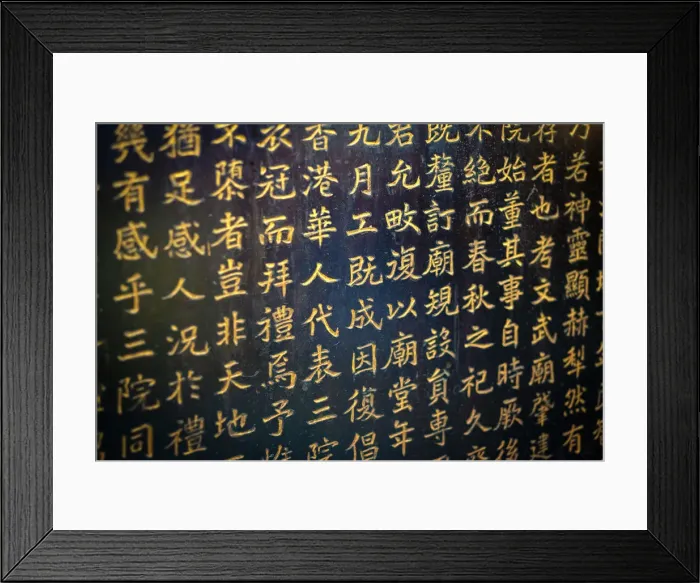 若神靈顯赫犁然有
存者也考文武廟肇建
院始董其事自時厥後
不絕而春秋之祀久
既釐訂廟規設員專
君允畋復以廟堂年
九月工既成因復倡
香港華人代表三院
衣冠而拜禮焉予惟
不隳者豈非天地
猶足感人況於禮
幾有感乎三院同